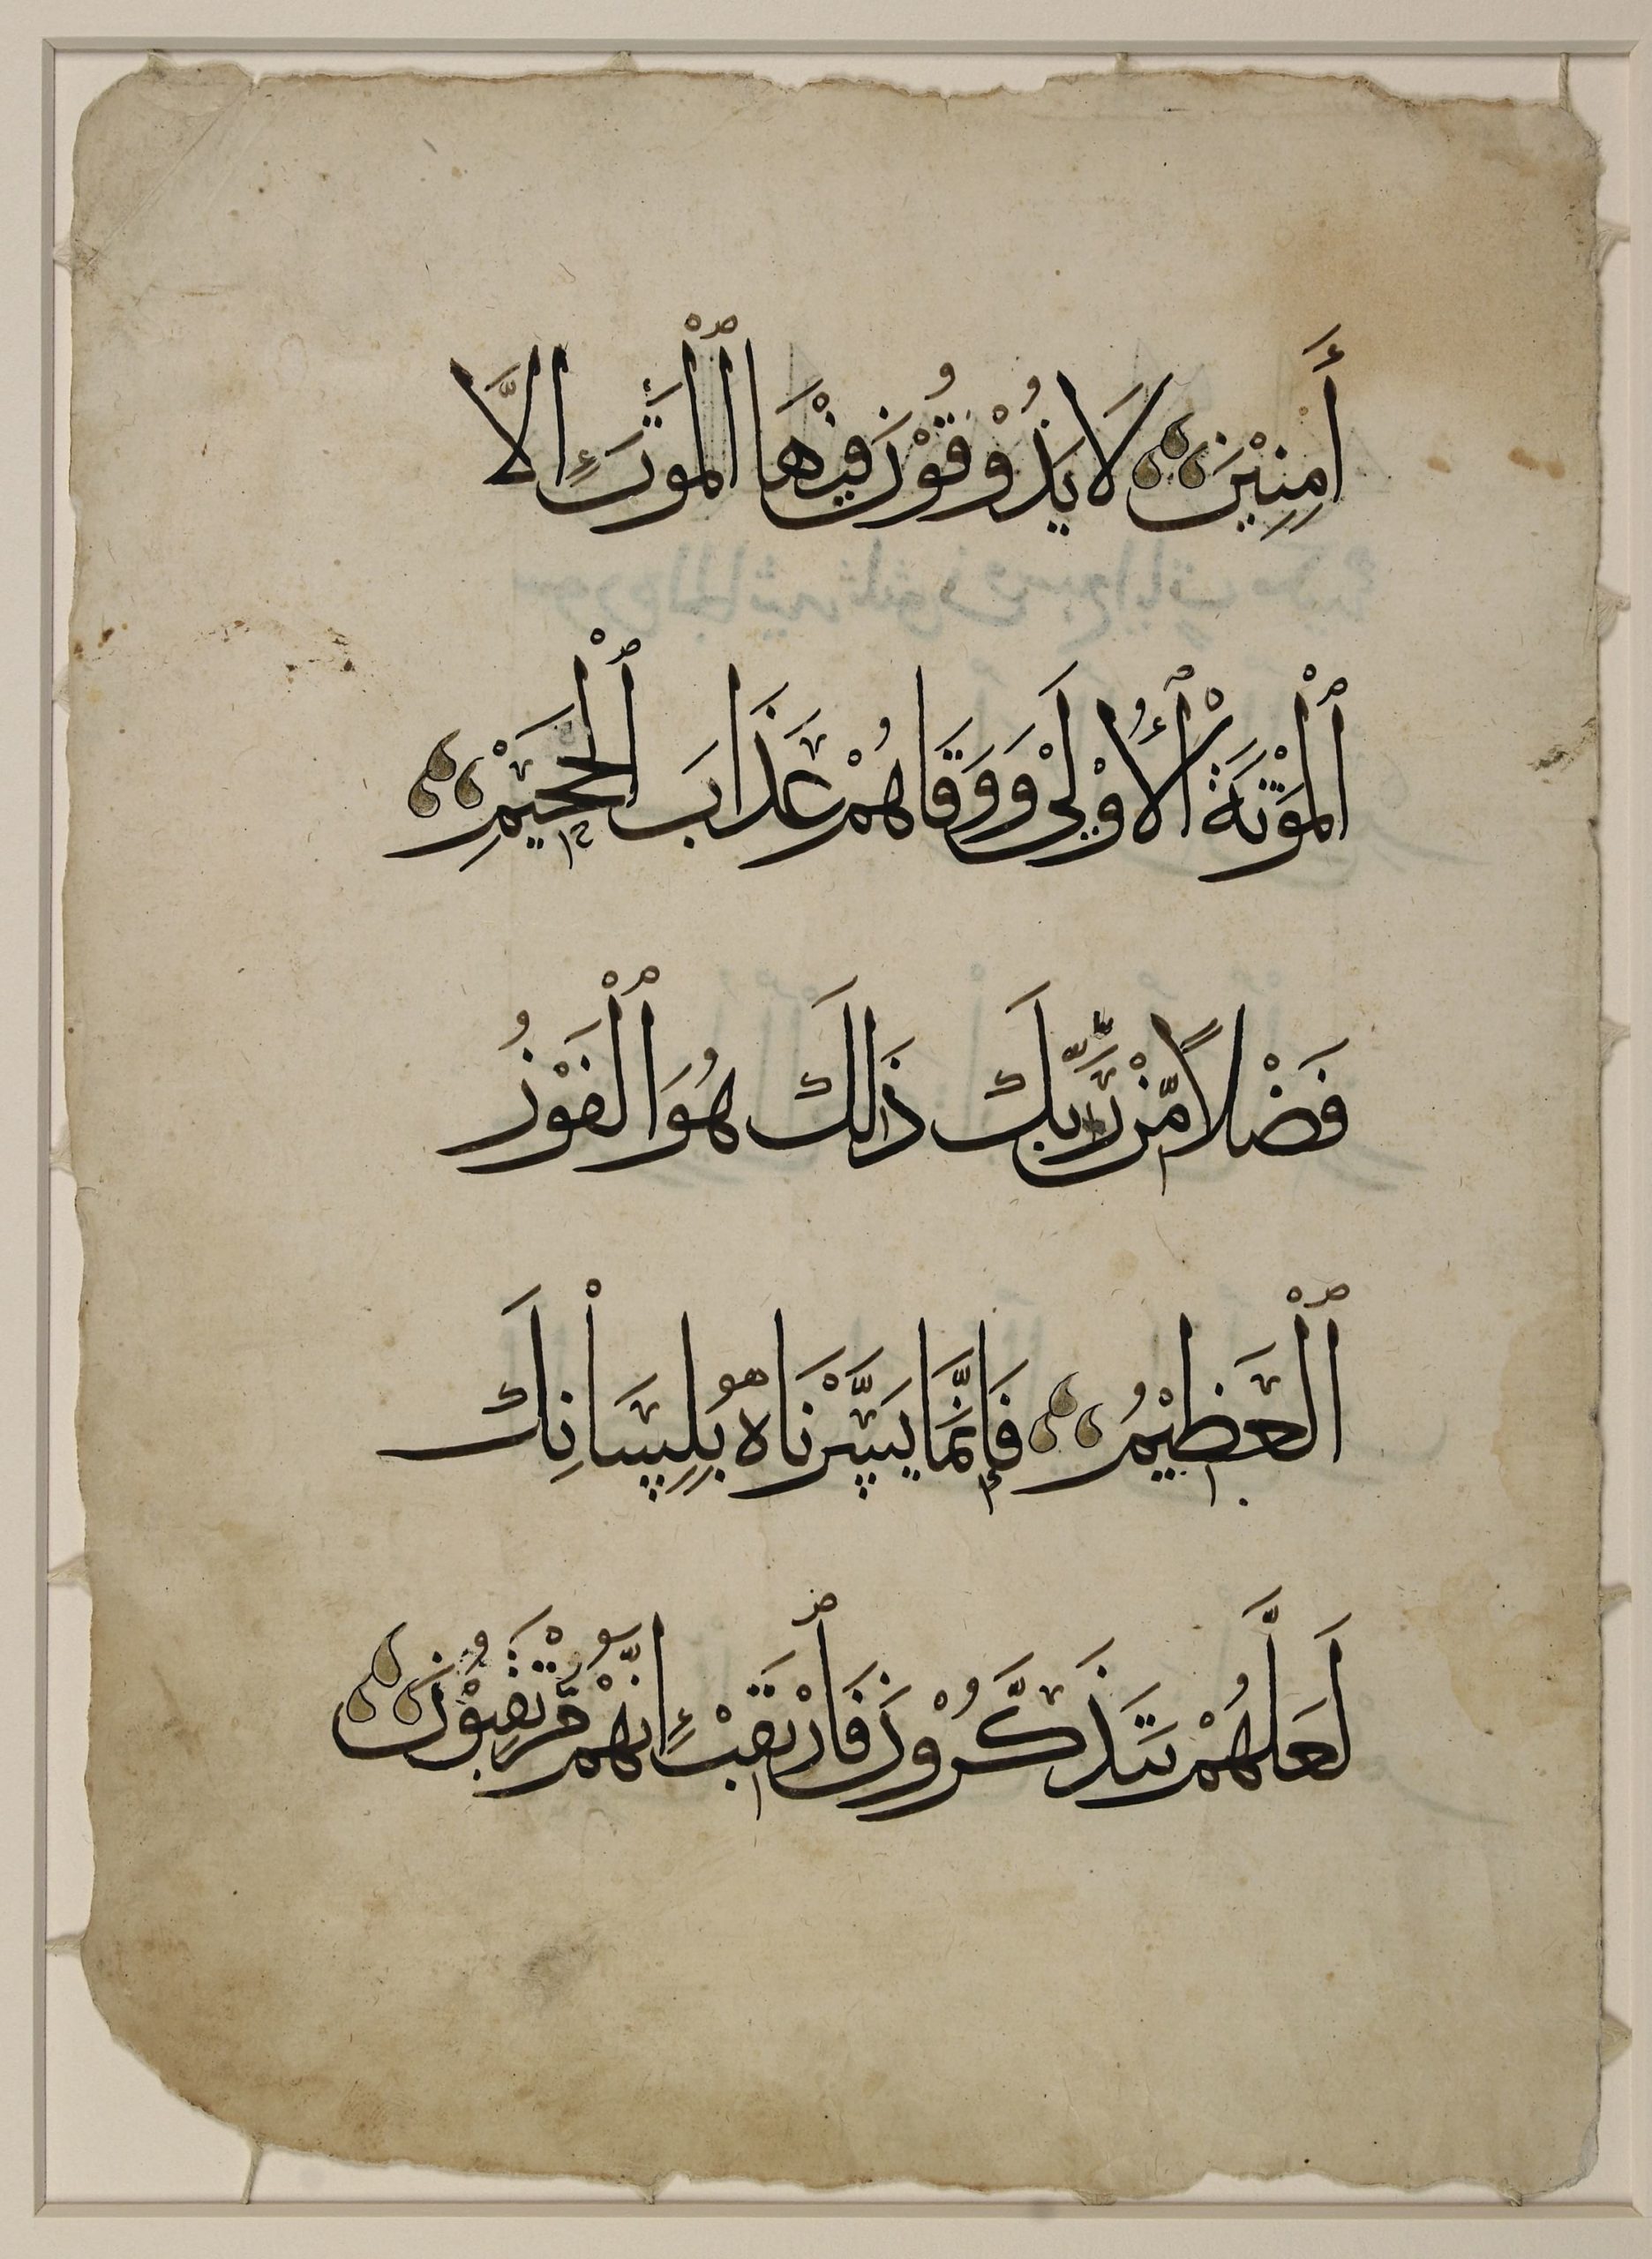 أَمِنِيْنَ لَا يَذُوْقُوْنَ فِيْهَا ٱلْمَوتَ إِلَّا
ٱلْمَوْتَةَ ٱلْأُوْلَىْ وَوَقَاهُمْ عَذَابَ ٱلْجَحِيْمِ
فَضْلًا مِّنْ رَّبِّكَ ذَالِكَ هُوَ ٱلْفَوْزُ
ٱلْعَظِيْمُ فَإِنَّمَا يَسَّرْنَاهُ بِلِسَانِكَ
لَعَلَّهُمْ يَتَذَكَّرُوْنَ فَٱرْتَقِبْ إِنَّهُمْ مُّرْتَقِبُوْنَ